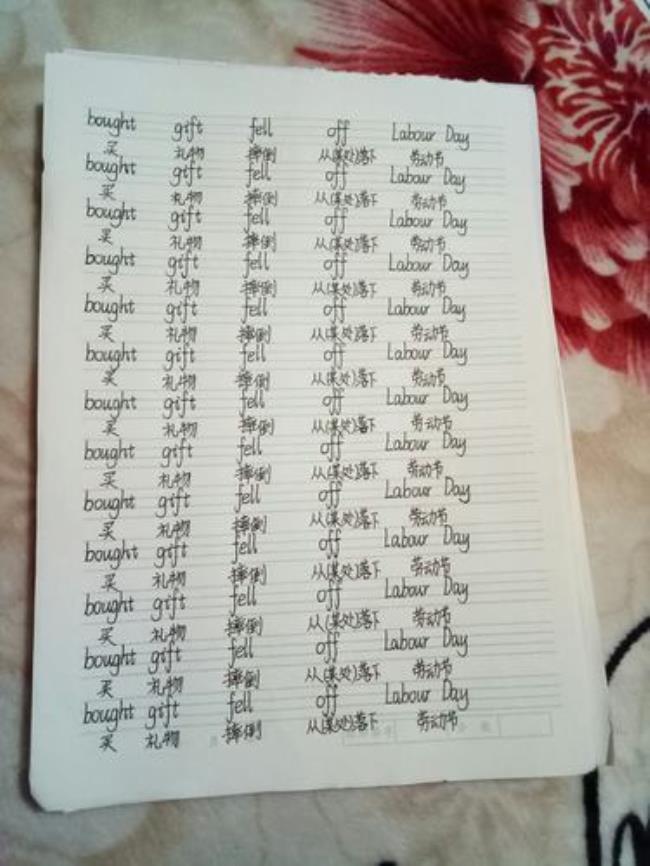 bought gift fell off Labour Day
买 礼物 摔倒 从(某处)落下 劳动节
bought gift fell off Labour Day
买 礼物 摔倒 从(某处)落下 劳动节
bought gift fell off Labour Day
买 礼物 摔倒 从(某处)落下 劳动节
bought gift fell off Labour Day
买 礼物 摔倒 从(某处)落下 劳动节
bought gift fell off Labour Day
买 礼物 摔倒 从(某处)落下 劳动节
bought gift fell off Labour Day
买 礼物 摔倒 从(某处)落下 劳动节
bought gift fell off Labour Day
买 礼物 摔倒 从(某处)落下 劳动节
bought gift fell off Labour Day
买 礼物 摔倒 从(某处)落下 劳动节
bought gift fell off Labour Day
买 礼物 摔倒 从(某处)落下 劳动节
bought gift fell off Labour Day
买 礼物 摔倒 从(某处)落下 劳动节
bought gift fell off Labour Day
买 礼物 摔倒 从(某处)落下 劳动节
bought gift fell off Labour Day
买 礼物 摔倒 从(某处)落下 劳动节
bought gift fell off Labour Day
买 礼物 摔倒 从(某处)落下 劳动节